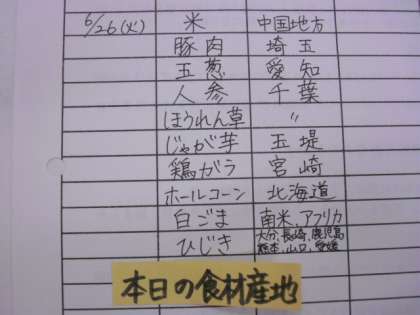 6/26(火) 米 中国地方
豚肉 埼玉
玉葱 愛知
人参 千葉
ほうれん草 〃
じゃが芋 玉堤
鶏ガラ 宮崎
ホールコーン 北海道
白ごま 南米、アフリカ
ひじき 大分、長崎、鹿児島
熊本、山口、愛媛
本日の食材産地